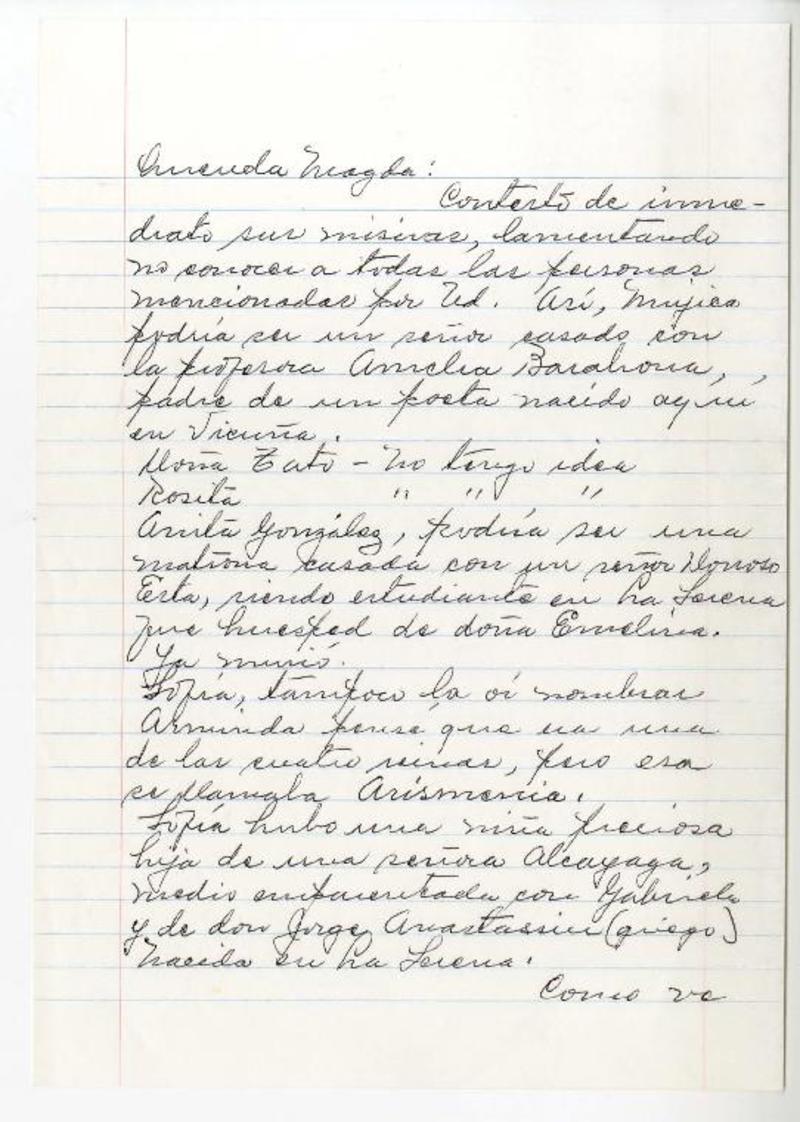 Querida Magda:
Contesto de inme-
diato sus misivas, lamentando
no conocer a todas las personas
mencionadas por Ud. Así, Mujica
podría ser un señor casado con
la profesora Amelia Barahona,
padre de un poeta nacido aquí
en Vicuña.
Doña Tato - No tengo idea
Rosita " " "
Anita González, podría ser una
matrona casada con un señor Donoso
Esta, siendo estudiante en La Serena
fue huesped de doña Emelina.
Ya murió.
Sofía, tampoco la oí nombrar
Arminda pensé que era una
de las cuatro reinas, pero esa
se llamaba Arismenia.
Sofía hubo una niña preciosa
hija de una señora Alcayaga,
medio emparentada con Gabriela
y de don Jorge (griego)
Nacida en La Serena.
Como ve